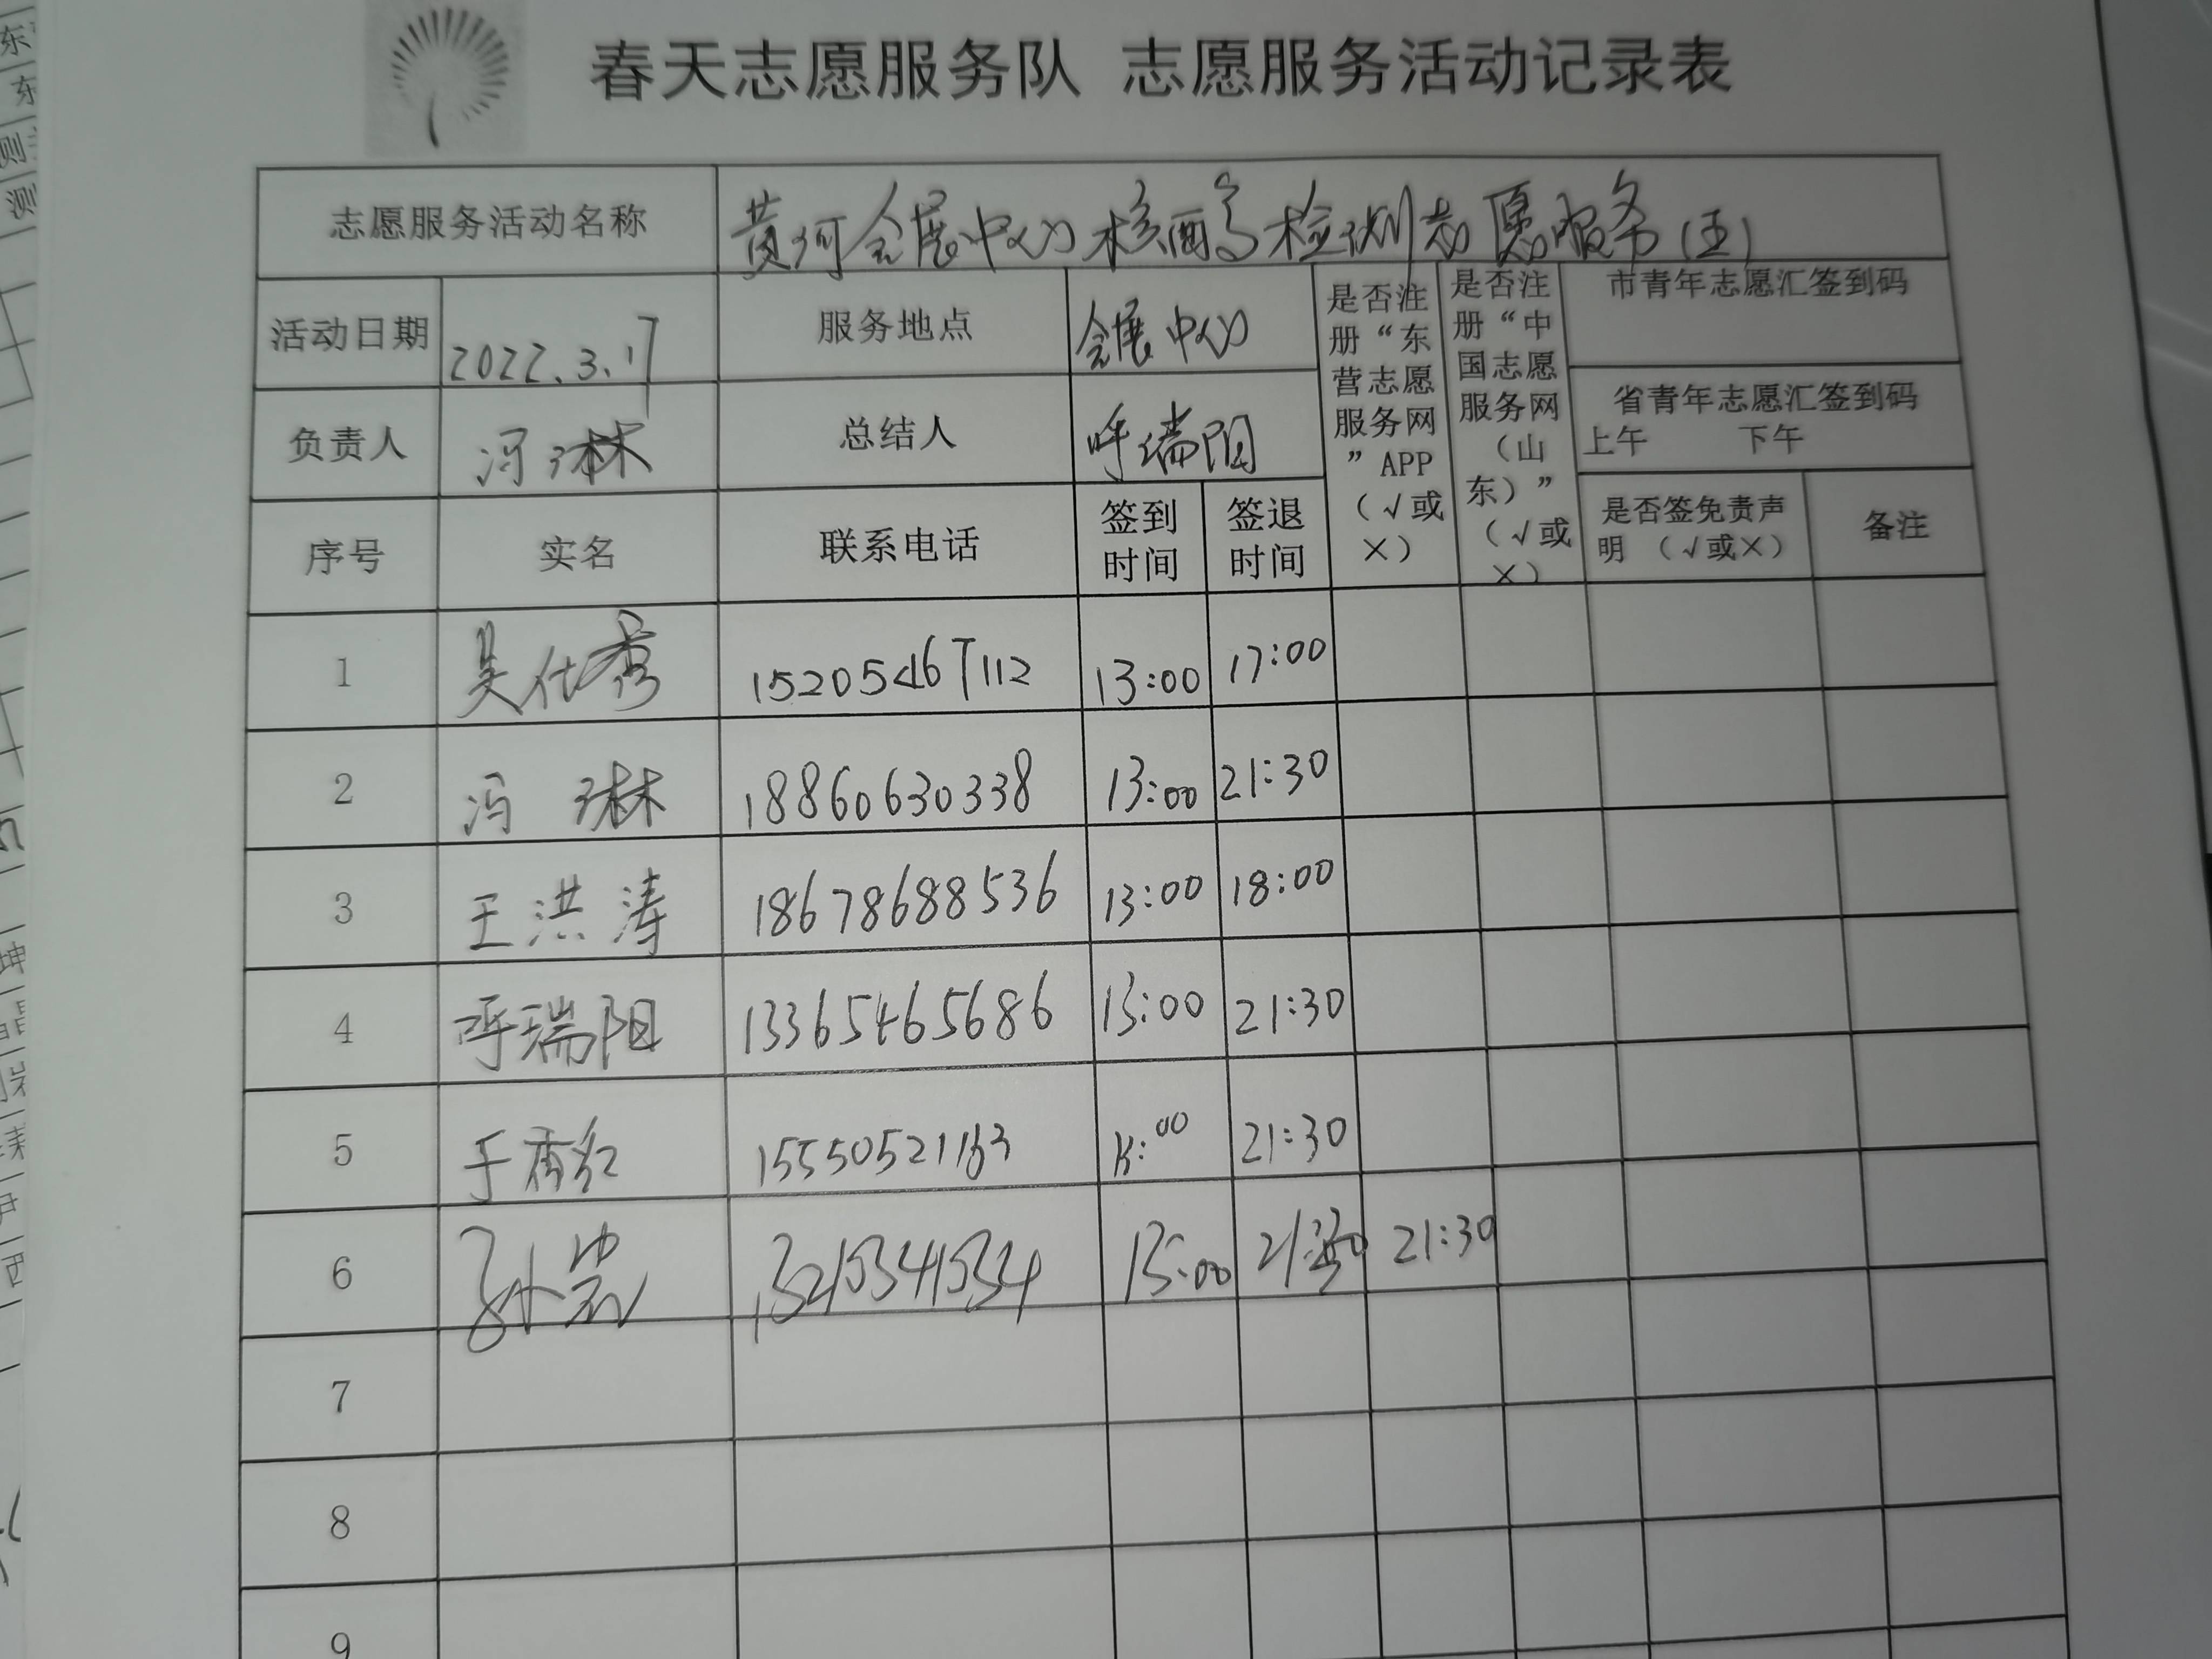 春天志愿服务队 志愿服务活动记录表
志愿服务活动名称 黄河会展中心核酸检测志愿服务(五)
活动日期 2022.3.17 服务地点 会展中心
负责人 冯琳 总结人 呼瑞阳
是否注册“东营志愿服务网”APP（√或×）
是否注册“中国志愿服务网（山东）”（√或×）
市青年志愿汇签到码
省青年志愿汇签到码
上午 下午
序号 实名 联系电话 签到时间 签退时间 是否签免责声明（√或×） 备注
1 吴仕秀 15205467112 13:00 17:00
2 冯琳 18860630338 13:00 21:30
3 王洪涛 18678688536 13:00 18:00
4 呼瑞阳 13365465686 13:00 21:30
5 于秀红 15550521163 21:30
6 13:00 21:30
7
8
9